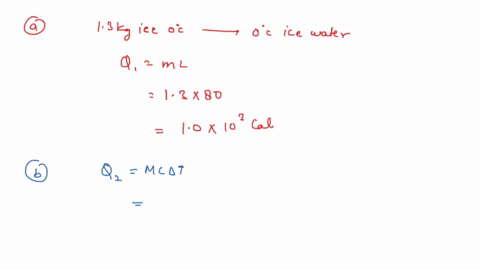 a 1.3kg ice 0°c → 0°c ice water
Q₁ = mL
= 1.3 × 80
= 1.0 × 10³ Cal
b Q₂ = MCΔT
=